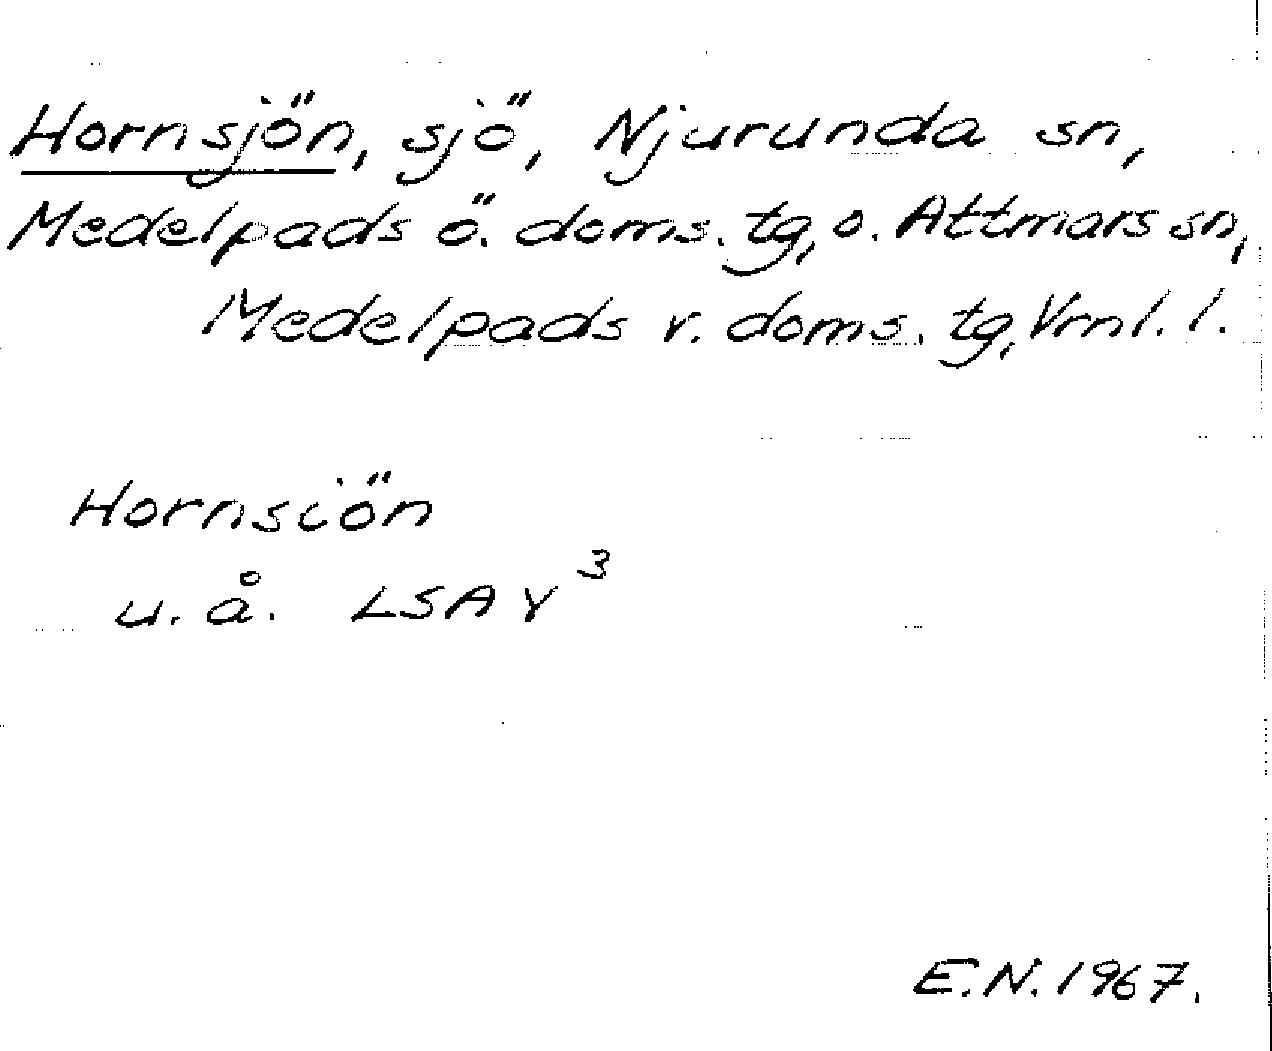 Hornsjön, sjö, Njurunda sn,
Medelpads ö. doms. tg, o. Attmars sn,
Medelpads v. doms. tg, Vrnl. l.
Hornsiön
u. å. LSA Y³
E.N. 1967.